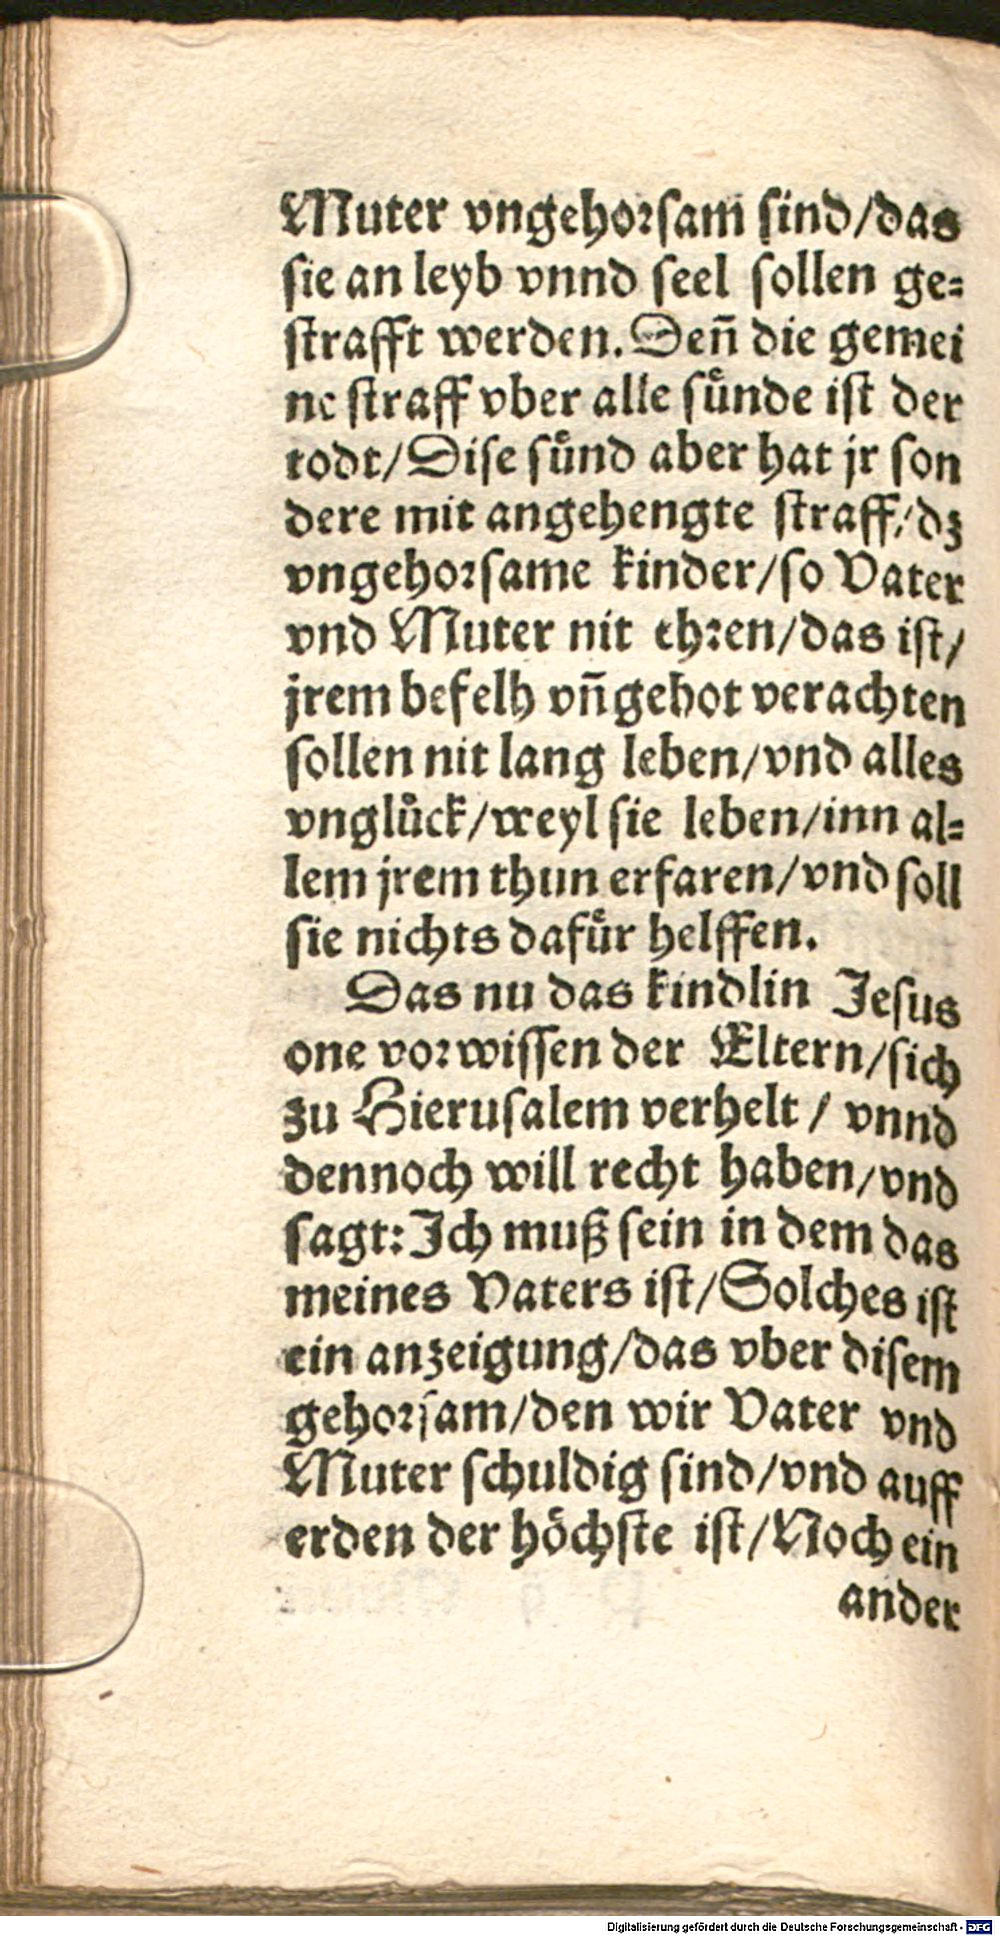 Muter vngehorsam sind/das
sie an leyb vnnd seel sollen ge=
strafft werden. Den̄ die gemei
ne straff vber alle suͤnde ist der
todt/Dise suͤnd aber hat jr son
dere mit angehengte straff/dz
vngehorsame kinder/so Vater
vnd Muter nit ehren/das ist/
jrem befelh vn̄ gebot verachten
sollen nit lang leben/vnd alles
vngluͤck/weyl sie leben/inn al=
lem jrem thun erfaren/vnd soll
sie nichts dafuͤr helffen.
Das nu das kindlin Jesus
one vorwissen der Eltern/sich
zu Hierusalem verhelt / vnnd
dennoch will recht haben/vnd
sagt: Ich muß sein in dem das
meines Vaters ist/Solches ist
ein anzeigung/das vber disem
gehorsam/den wir Vater vnd
Muter schuldig sind/vnd auff
erden der hoͤchste ist/Noch ein
ander
Digitalisierung gefördert durch die Deutsche Forschungsgemeinschaft - DFG